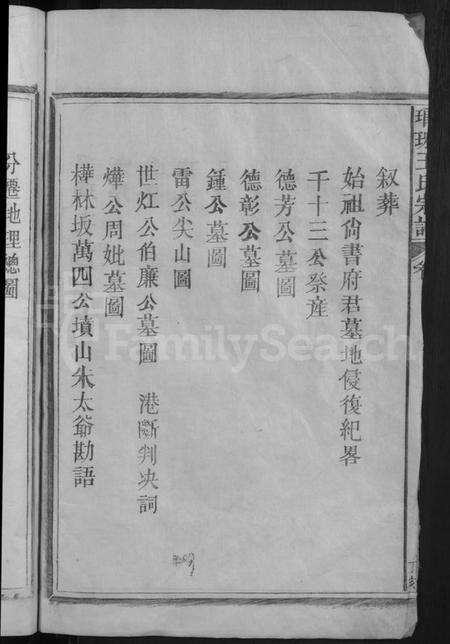 琅琊王氏宗譜
叙葬
始祖尚書府君墓地侵復紀畧
千十三公祭産
德芳公墓圖
德彰公墓圖
鍾公墓圖
雷公尖山圖
世灴公伯廉公墓圖　港斷判决詞
燁公周妣墓圖
樺林坂萬四公墳山朱太爺勘語
分遷地理總圖
FamilySearch